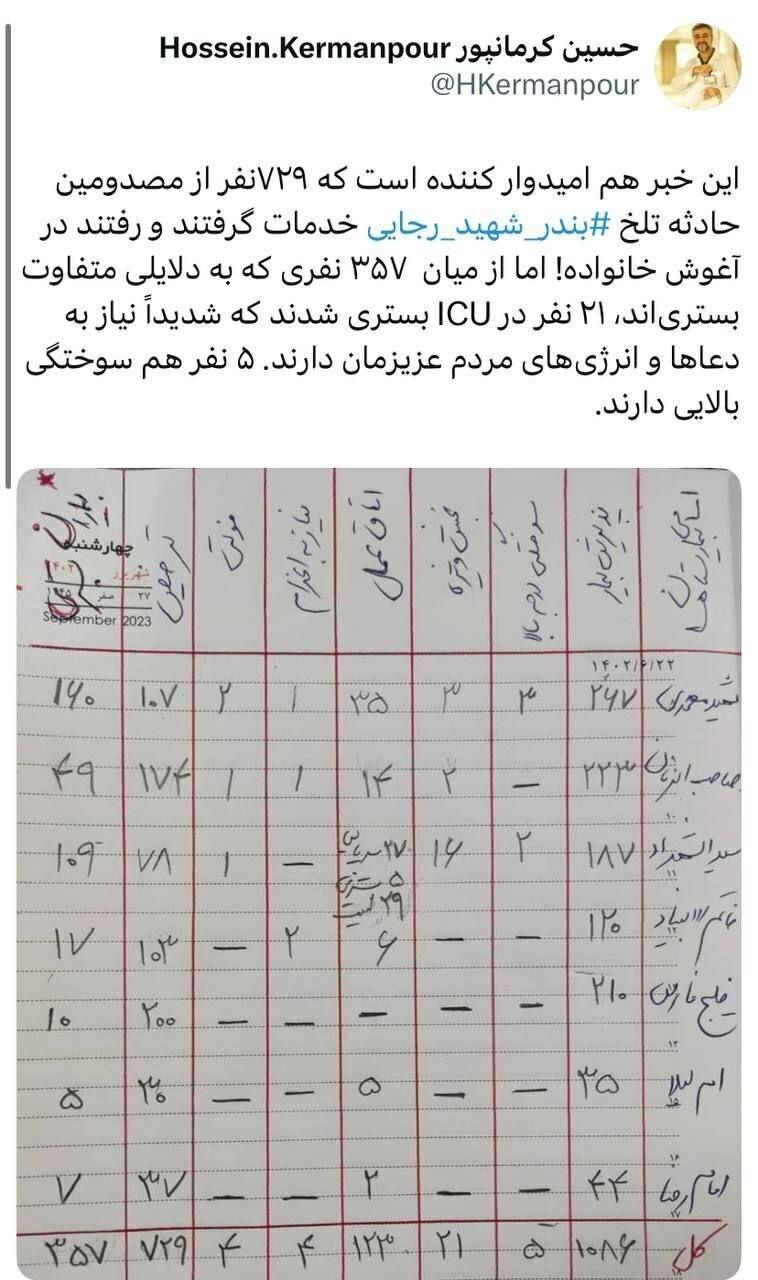 حسین کرمانپور Hossein.Kermanpour
@HKermanpour
این خبر هم امیدوار کننده است که ۷۲۹نفر از مصدومین
حادثه تلخ #بندر_شهید_رجایی خدمات گرفتند و رفتند در
آغوش خانواده! اما از میان ۳۵۷ نفری که به دلایلی متفاوت
بستری‌اند، ۲۱ نفر در ICU بستری شدند که شدیداً نیاز به
دعاها و انرژی‌های مردم عزیزمان دارند. ۵ نفر هم سوختگی
بالایی دارند.
اسامی بیمارستان‌ها پذیرش بیمار سوختگی درجه بالا بخش ویژه اتاق عمل نیاز به اعزام فوتی ترخیص
چهارشنبه
شهریور ۱۴۰۲
۲۷ صفر
September 2023
۱۴۰۲/۶/۲۲
شهید محمدی ۲۶۷ ۳ ۳ ۳۵ ۱ ۲ ۱۰۷ ۱۶۰
صاحب الزمان ۲۲۳ — ۲ ۱۴ ۱ ۱ ۱۷۴ ۴۹
سید الشهداء ۱۸۷ ۲ ۱۶ ۲۷ سرپایی — ۱ ۷۸ ۱۰۹
۵ بستری
۲۹ لیست
خاتم الانبیاء ۱۲۰ — — ۶ ۲ — ۱۰۳ ۱۷
خلیج فارس ۲۱۰ — — — — — ۲۰۰ ۱۰
ام لیلا ۳۵ — — ۵ — — ۳۰ ۵
امام رضا ۴۴ — — ۲ — — ۳۷ ۷
کل ۱۰۸۶ ۵ ۲۱ ۱۲۳ ۴ ۴ ۷۲۹ ۳۵۷